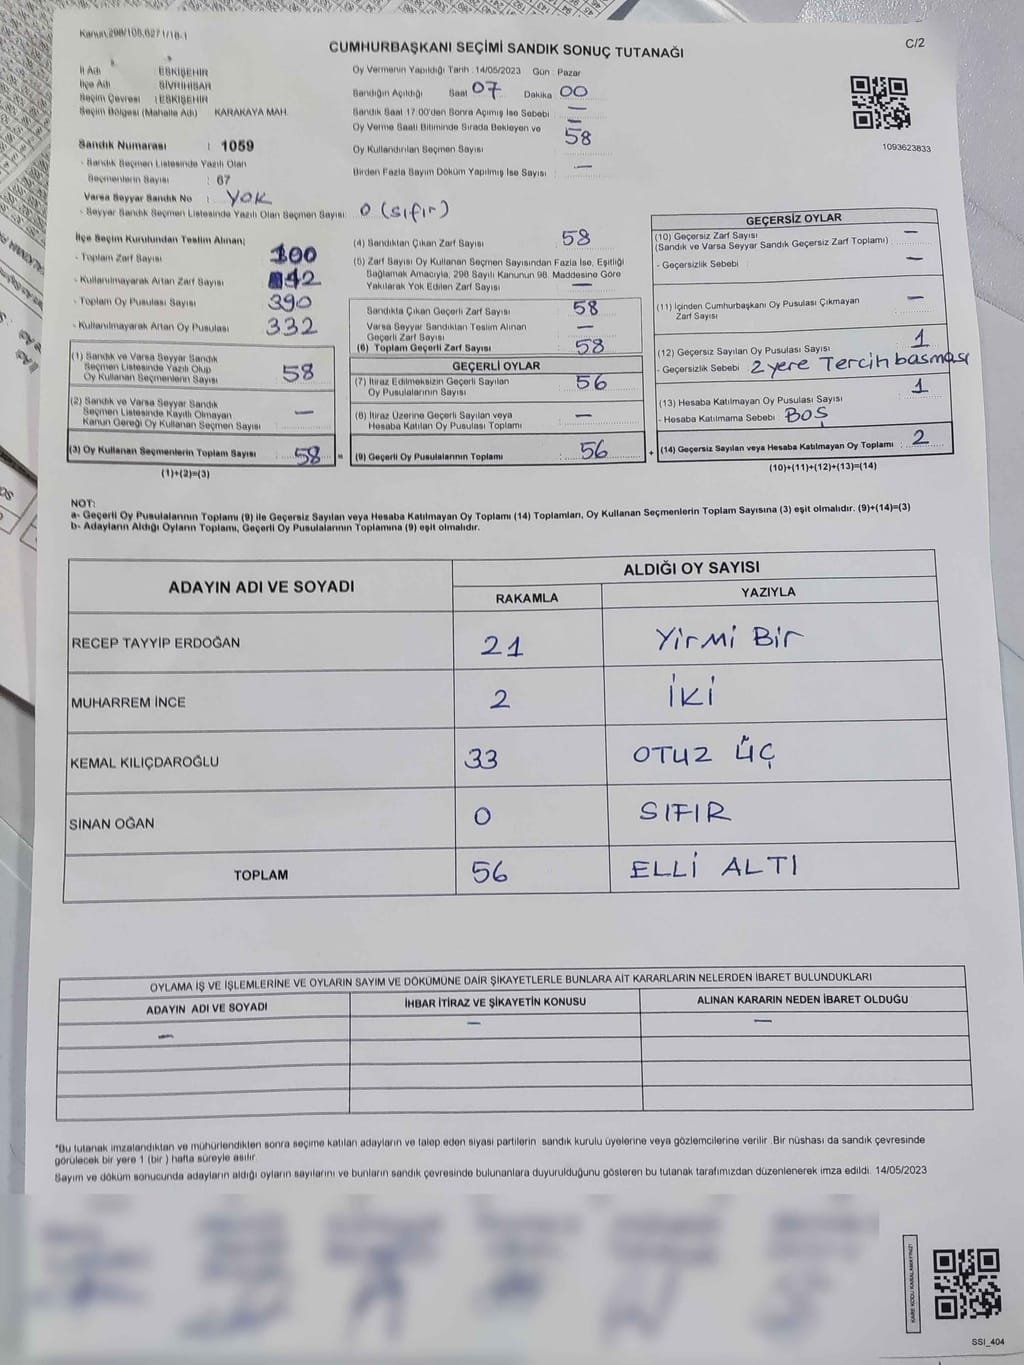 Kanun 298/105,6271/18-1
CUMHURBAŞKANI SEÇİMİ SANDIK SONUÇ TUTANAĞI
C/2
İl Adı : ESKİŞEHİR
İlçe Adı : SİVRİHİSAR
Seçim Çevresi : ESKİŞEHİR
Seçim Bölgesi (Mahalle Adı) KARAKAYA MAH.
Oy Vermenin Yapıldığı Tarih : 14/05/2023 Gün : Pazar
Sandığın Açıldığı Saat 07 Dakika 00
Sandık Saat 17:00'den Sonra Açımış İse Sebebi —
Oy Verme Saati Bitiminde Sırada Bekleyen ve —
Oy Kullandırılan Seçmen Sayısı 58
Birden Fazla Sayım Döküm Yapılmış İse Sayısı —
1093623833
Sandık Numarası : 1059
- Sandık Seçmen Listesinde Yazılı Olan
Seçmenlerin Sayısı : 67
Varsa Seyyar Sandık No : YOK
- Seyyar Sandık Seçmen Listesinde Yazılı Olan Seçmen Sayısı: 0 (sıfır)
İlçe Seçim Kurulundan Teslim Alınan;
- Toplam Zarf Sayısı 100
- Kullanılmayarak Artan Zarf Sayısı 42
- Toplam Oy Pusulası Sayısı 390
- Kullanılmayarak Artan Oy Pusulası 332
(1) Sandık ve Varsa Seyyar Sandık
Seçmen Listesinde Yazılı Olup
Oy Kullanan Seçmenlerin Sayısı 58
(2) Sandık ve Varsa Seyyar Sandık
Seçmen Listesinde Kayıtlı Olmayan
Kanun Gereği Oy Kullanan Seçmen Sayısı —
(3) Oy Kullanan Seçmenlerin Toplam Sayısı 58 =
(1)+(2)=(3)
(4) Sandıktan Çıkan Zarf Sayısı 58
(5) Zarf Sayısı Oy Kullanan Seçmen Sayısından Fazla İse, Eşitliği
Sağlamak Amacıyla, 298 Sayılı Kanunun 98. Maddesine Göre
Yakılarak Yok Edilen Zarf Sayısı —
Sandıkta Çıkan Geçerli Zarf Sayısı 58
Varsa Seyyar Sandıktan Teslim Alınan
Geçerli Zarf Sayısı —
(6) Toplam Geçerli Zarf Sayısı 58
GEÇERLİ OYLAR
(7) İtiraz Edilmeksizin Geçerli Sayılan
Oy Pusulasının Sayısı 56
(8) İtiraz Üzerine Geçerli Sayılan veya
Hesaba Katılan Oy Pusulası Toplamı —
(9) Geçerli Oy Pusulalarının Toplamı 56 +
GEÇERSİZ OYLAR
(10) Geçersiz Zarf Sayısı —
(Sandık ve Varsa Seyyar Sandık Geçersiz Zarf Toplamı)
- Geçersizlik Sebebi : —
(11) İçinden Cumhurbaşkanı Oy Pusulası Çıkmayan
Zarf Sayısı —
(12) Geçersiz Sayılan Oy Pusulası Sayısı 1
- Geçersizlik Sebebi 2 yere Tercih basması
(13) Hesaba Katılmayan Oy Pusulası Sayısı 1
- Hesaba Katılmama Sebebi : BOŞ
(14) Geçersiz Sayılan veya Hesaba Katılmayan Oy Toplamı 2
(10)+(11)+(12)+(13)=(14)
NOT:
a- Geçerli Oy Pusulalarının Toplamı (9) ile Geçersiz Sayılan veya Hesaba Katılmayan Oy Toplamı (14) Toplamları, Oy Kullanan Seçmenlerin Toplam Sayısına (3) eşit olmalıdır. (9)+(14)=(3)
b- Adayların Aldığı Oyların Toplamı, Geçerli Oy Pusulalarının Toplamına (9) eşit olmalıdır.
ADAYIN ADI VE SOYADI
ALDIĞI OY SAYISI
RAKAMLA YAZIYLA
RECEP TAYYİP ERDOĞAN 21 Yirmi Bir
MUHARREM İNCE 2 İKİ
KEMAL KILIÇDAROĞLU 33 OTUZ ÜÇ
SİNAN OĞAN 0 SIFIR
TOPLAM 56 ELLİ ALTI
OYLAMA İŞ VE İŞLEMLERİNE VE OYLARIN SAYIM VE DÖKÜMÜNE DAİR ŞİKAYETLERLE BUNLARA AİT KARARLARIN NELERDEN İBARET BULUNDUKLARI
ADAYIN ADI VE SOYADI İHBAR İTİRAZ VE ŞİKAYETİN KONUSU ALINAN KARARIN NEDEN İBARET OLDUĞU
— — —
*Bu tutanak imzalandıktan ve mühürlendikten sonra seçime katılan adayların ve talep eden siyasi partilerin sandık kurulu üyelerine veya gözlemcilerine verilir. Bir nüshası da sandık çevresinde
görülecek bir yere 1 (bir ) hafta süreyle asılır.
Sayım ve döküm sonucunda adayların aldığı oyların sayılarını ve bunların sandık çevresinde bulunanlara duyurulduğunu gösteren bu tutanak tarafımızdan düzenlenerek imza edildi. 14/05/2023
KARE KODU KARALAMAYINIZ!
SSI_404